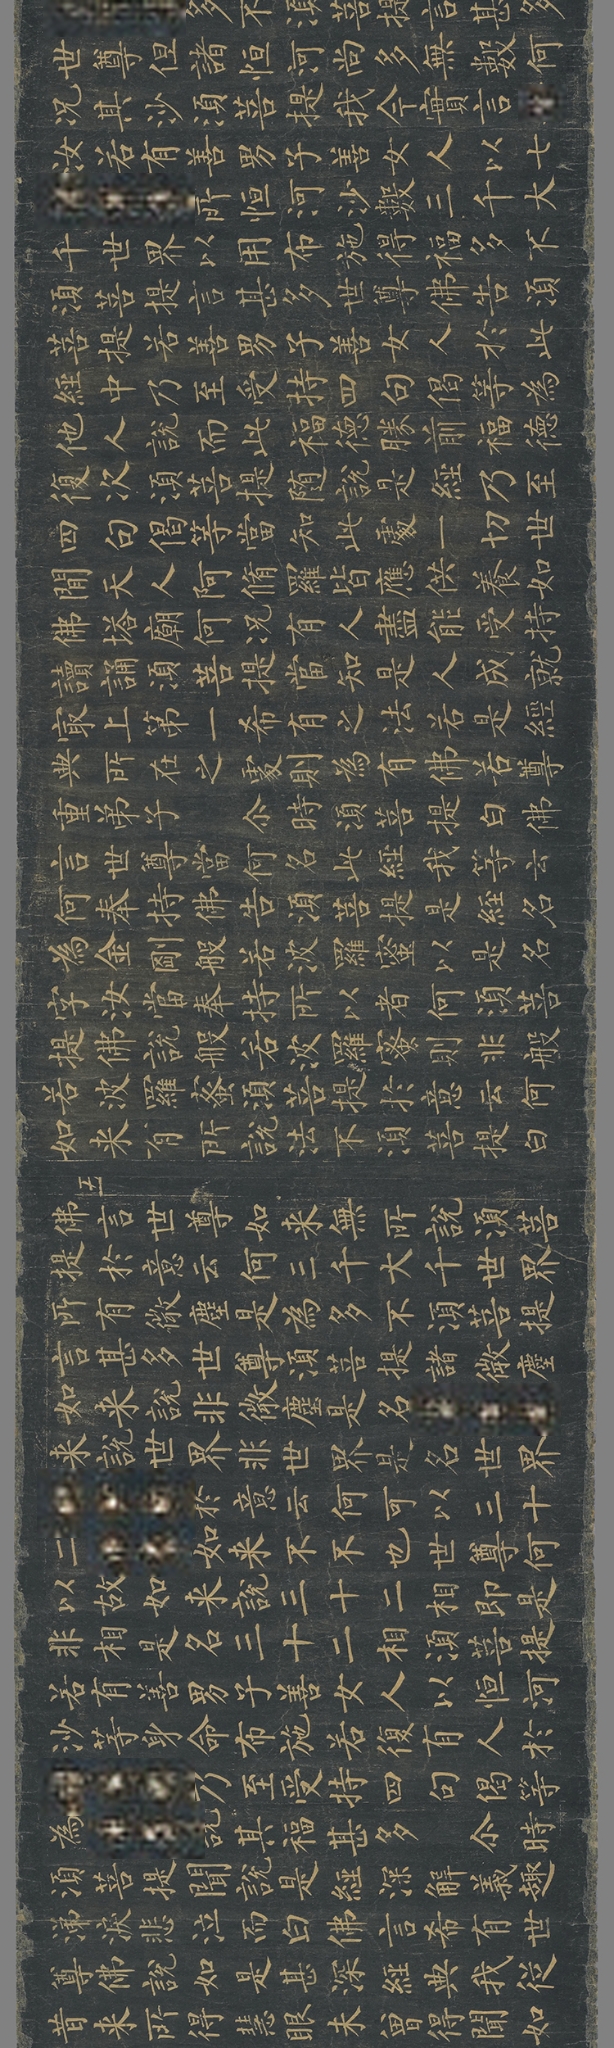 多不須菩提言甚多
世尊但諸恒河尚多無數何
況其沙須菩提我今實言
汝若有善男子善女人以七
所恒河沙數三千大
千世界以用布施得福多不
須菩提言甚多世尊佛告須
菩提若善男子善女人於此
經中乃至受持四句偈等為
他人說而此福德勝前福德
復次須菩提随說是經乃至
四句偈等當知此處一切世
間天人阿脩羅皆應供養如
佛塔廟何況有人盡能受持
讀誦須菩提當知是人成就
最上第一希有之法若是經
典所在之處則為有佛若尊
重弟子 尒時須菩提白佛
言世尊當何名此經我等云
何奉持佛告須菩提是經名
為金剛般若波羅蜜以是名
字汝當奉持所以者何須菩
提佛說般若波羅蜜則非般
若波羅蜜須菩提於意云何
如來有所說法不須菩提白
五
佛言世尊如來無所說須菩
提於意云何三千大千世界
所有微塵是為多不須菩提
言甚多世尊須菩提諸微塵
如來說非微塵是名
來說世界非世界是名世界
於意云何可以三十
二如來不不也世尊何
以故如來說三十二相即是
非相是名三十二相須菩提
若有善男子善女人以恒河
沙等身命布施若復有人於
乃至受持四句偈等
為說其福甚多 尒時
須菩提聞說是經深解義趣
涕淚悲泣而白佛言希有世
尊佛說如是甚深經典我從
昔來所得慧眼未曾得聞如